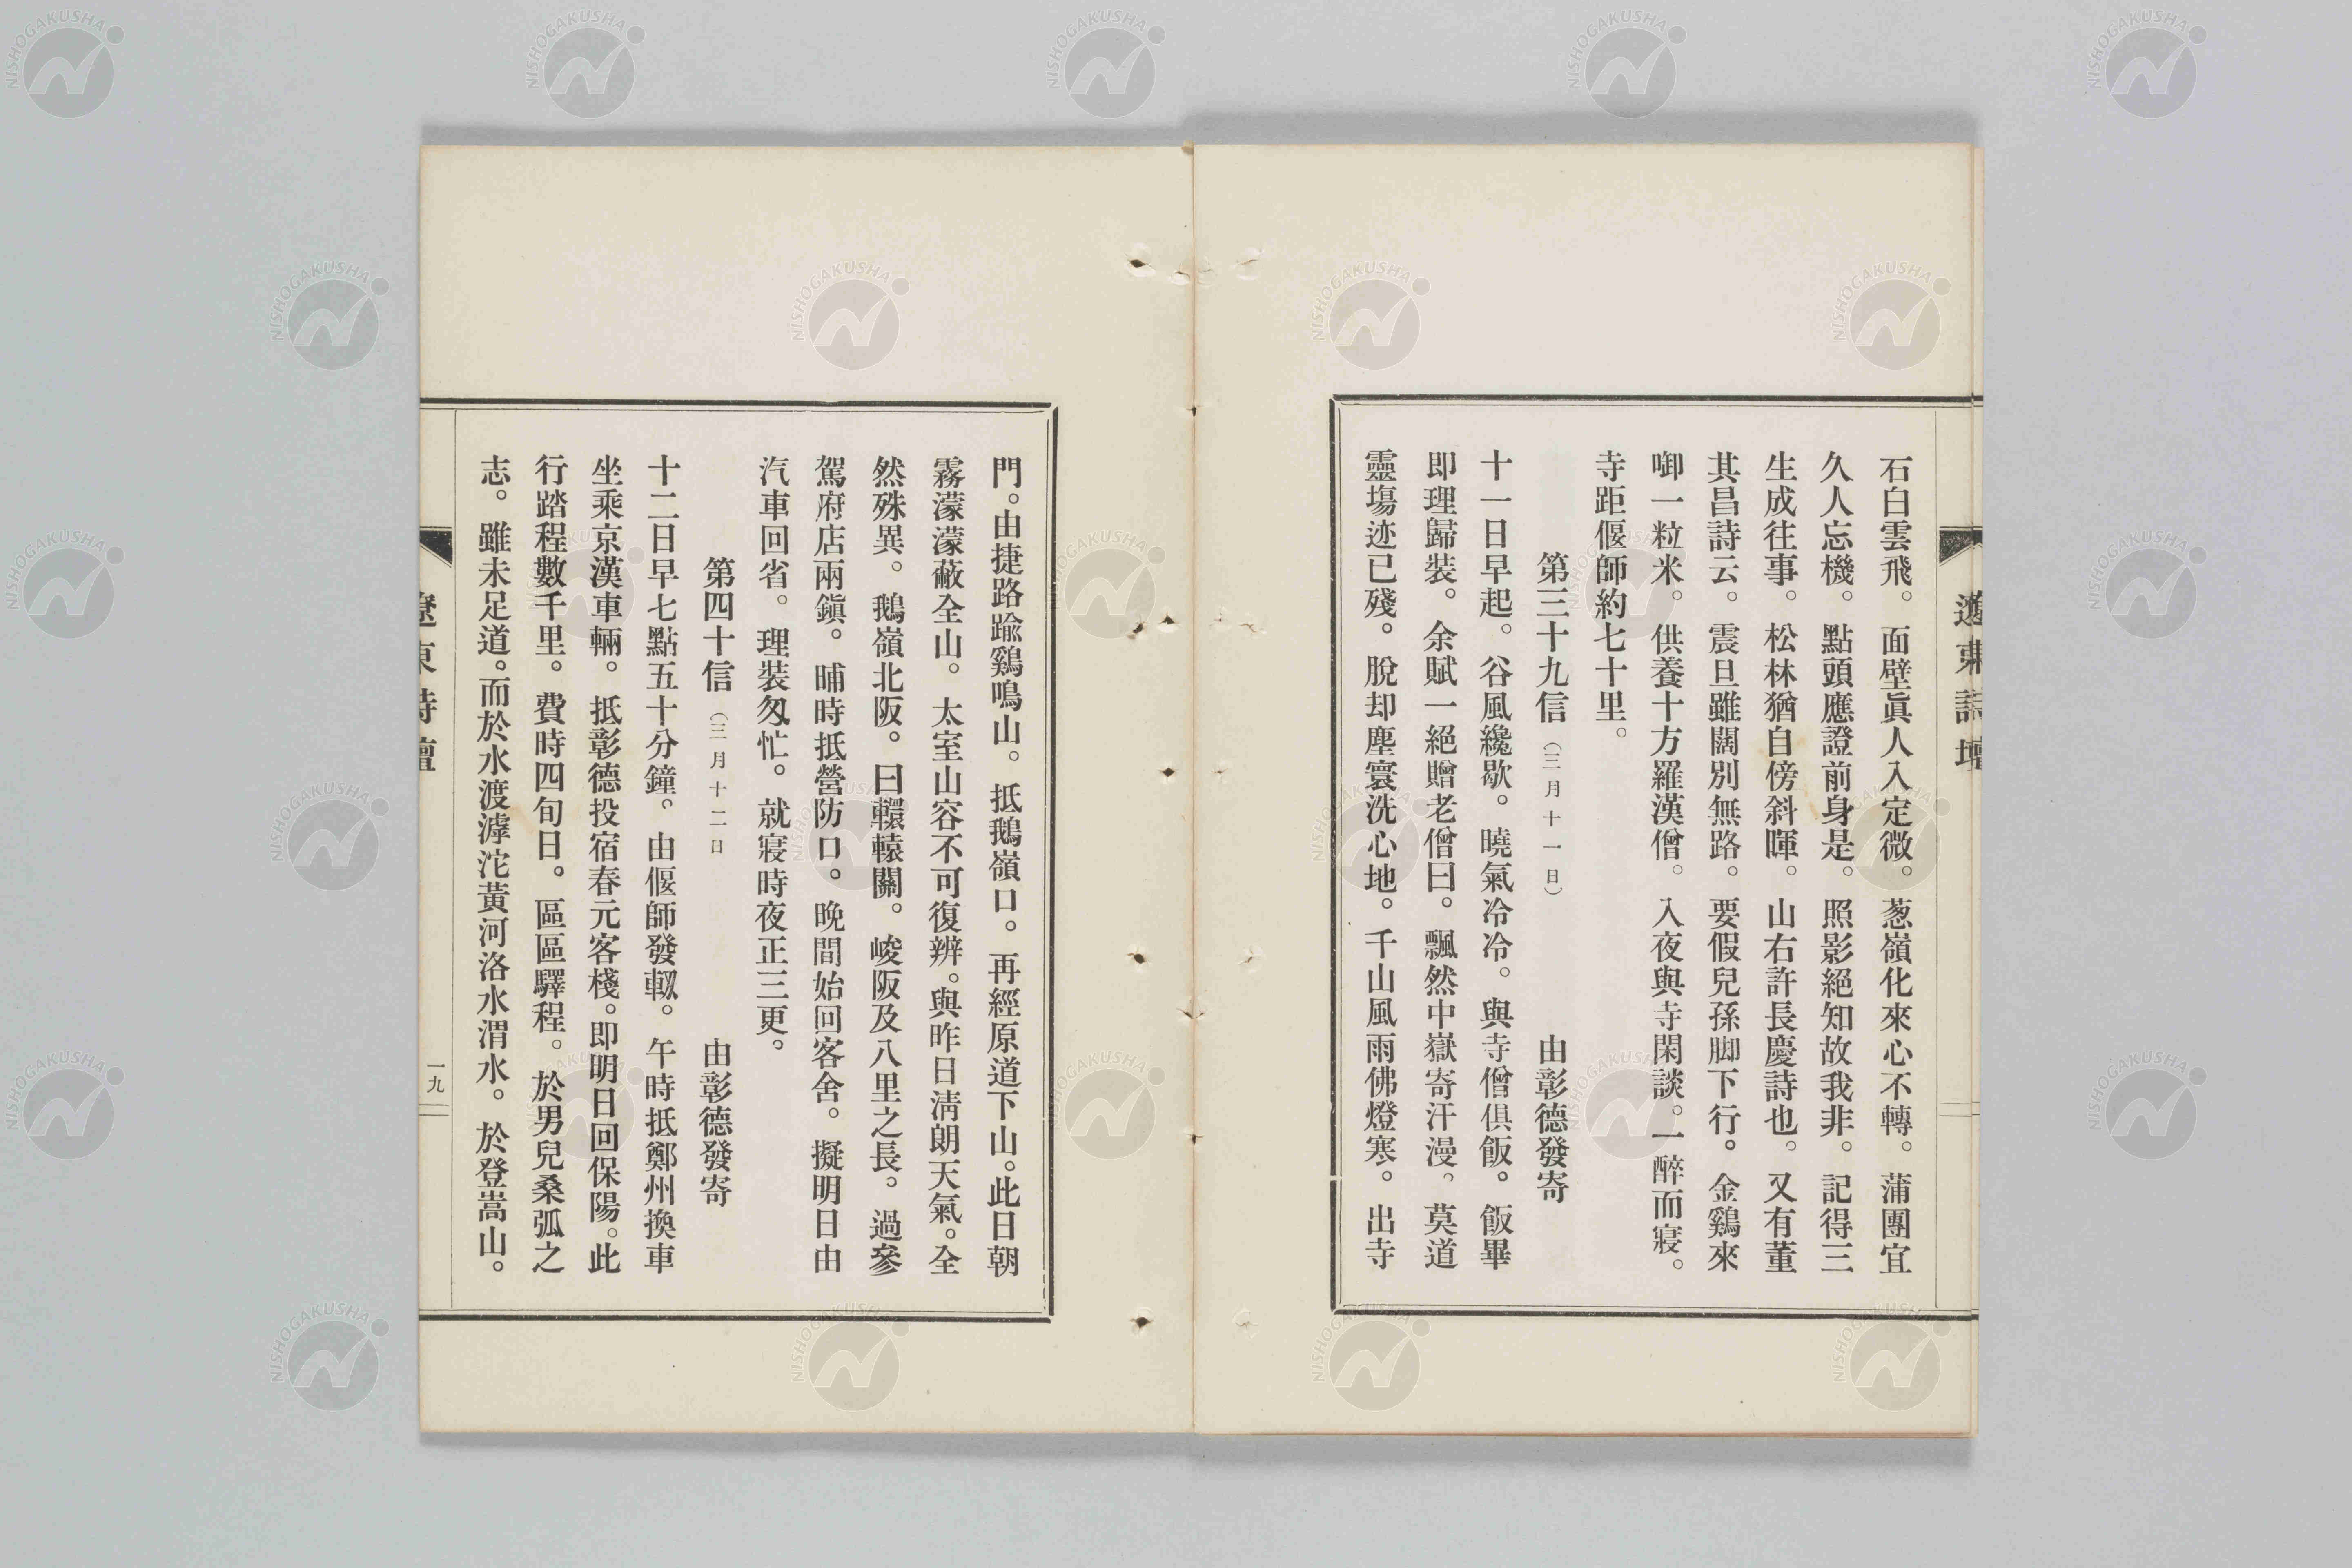 遼東詩壇
石白雲飛。面壁眞人入定微。葱嶺化來心不轉。蒲團宜
久人忘機。點頭應證前身是。照影絕知故我非。記得三
生成往事。松林猶自傍斜暉。山右許長慶詩也。又有董
其昌詩云。震旦雖闊別無路。要假兒孫脚下行。金鷄來
啣一粒米。供養十方羅漢僧。入夜與寺閑談。一醉而寢。
寺距偃師約七十里。
第三十九信（三月十一日）　由彰德發寄
十一日早起。谷風纔歇。曉氣冷冷。與寺僧俱飯。飯畢
即理歸裝。余賦一絕贈老僧曰。飄然中嶽寄汗漫。莫道
靈塲迹已殘。脫却塵寰洗心地。千山風雨佛燈寒。出寺
門。由捷路踰鷄鳴山。抵鵝嶺口。再經原道下山。此日朝
霧濛濛蔽全山。太室山容不可復辨。與昨日淸朗天氣。全
然殊異。鵝嶺北阪。曰轘轅關。峻阪及八里之長。過參
駕府店兩鎭。晡時抵營防口。晚間始回客舍。擬明日由
汽車回省。理裝匆忙。就寢時夜正三更。
第四十信（三月十二日　由彰德發寄
十二日早七點五十分鐘。由偃師發軔。午時抵鄭州換車
坐乘京漢車輛。抵彰德投宿春元客棧。即明日回保陽。此
行踏程數千里。費時四旬日。區區驛程。於男兒桑弧之
志。雖未足道。而於水渡滹沱黃河洛水渭水。於登嵩山。
遼東詩壇
一九
NISHOGAKUSHA